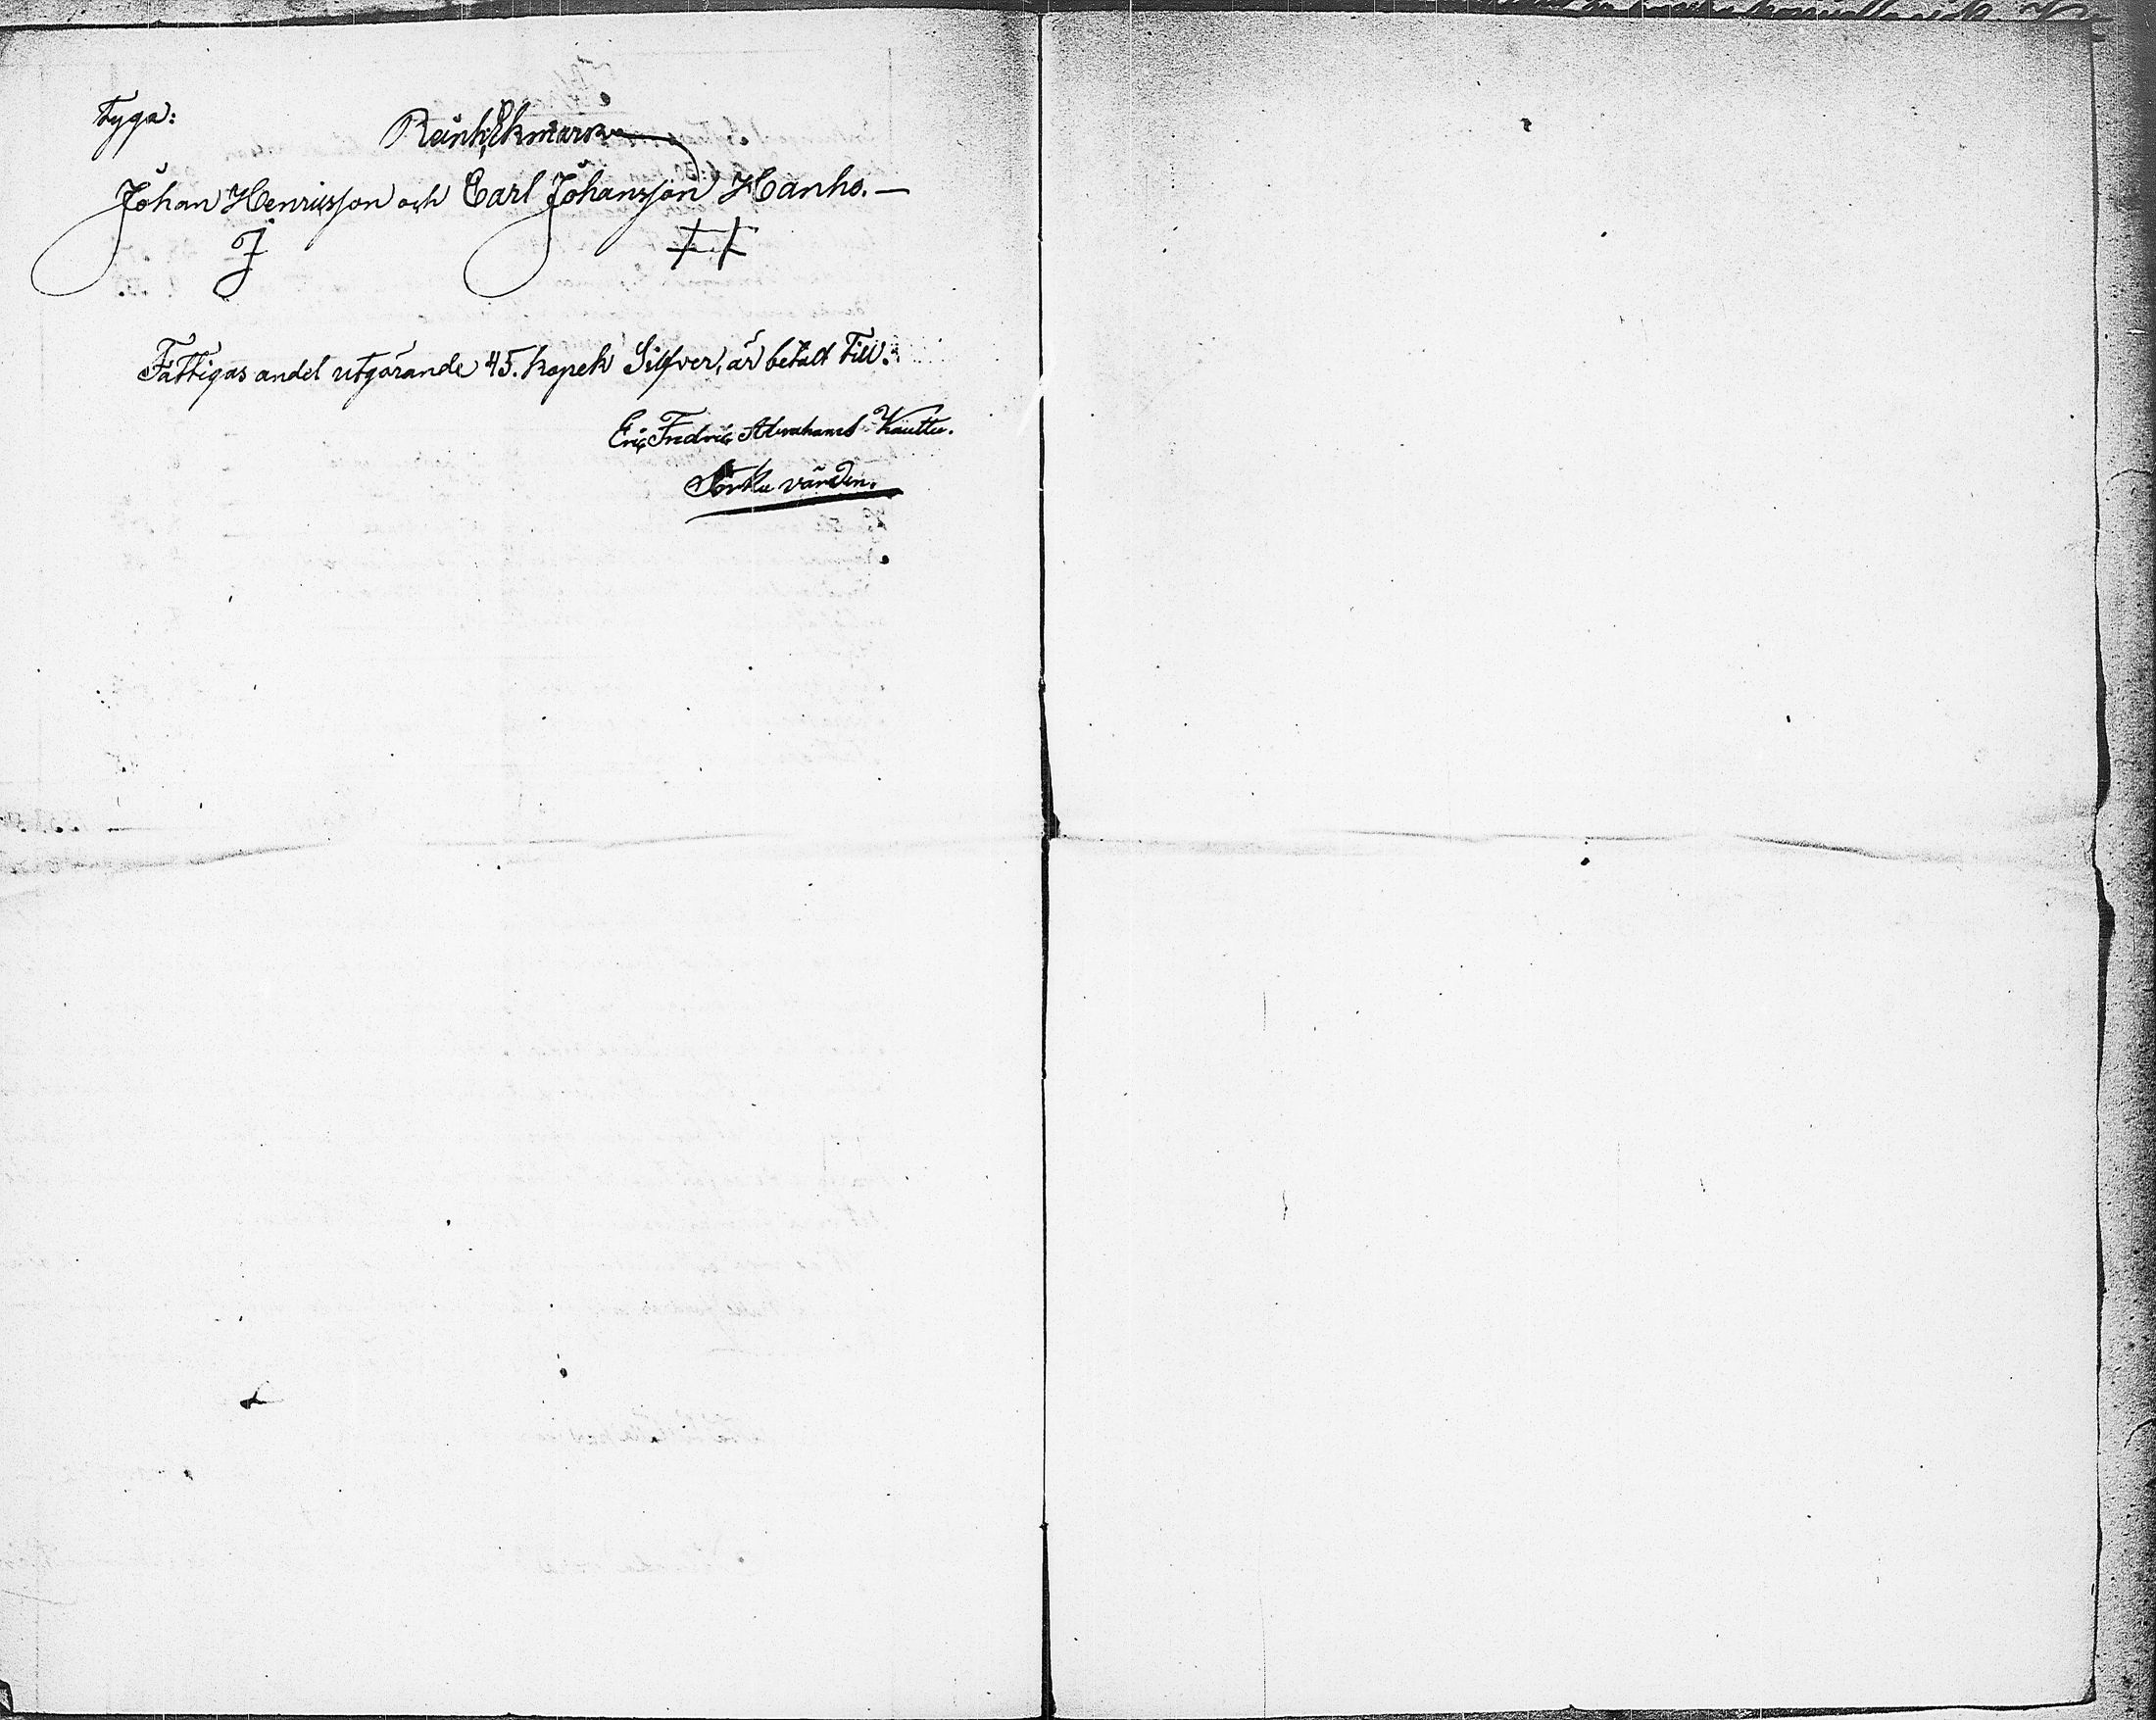 Tyga:
Reinh. Ekmark
Johan Henricsson och Carl Johansson Hanho. —
J
Fattigas andel utgörande 45. kopek Silfver, är betalt till.
Eric Fredric Abrahams Kauttu.
värden.